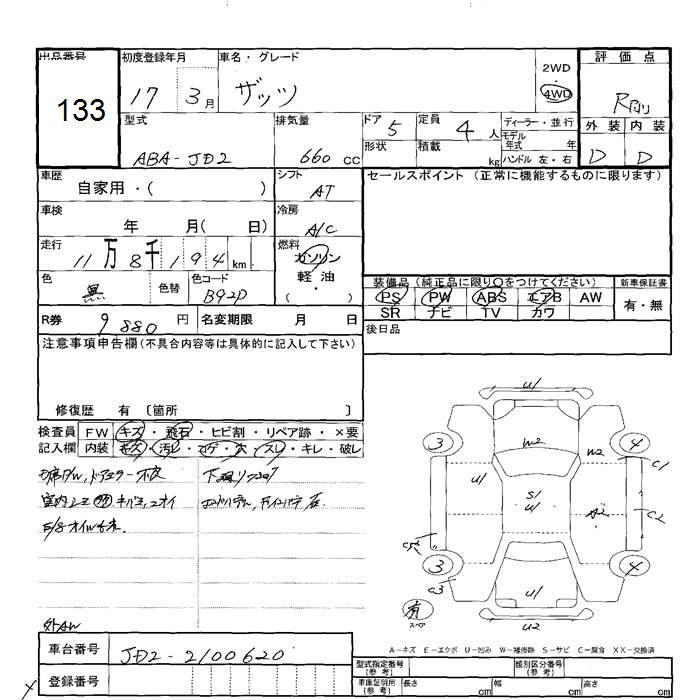 出品番号 初度登録年月 車名・グレード 2WD 4WD 評価点
133 17 3月 ザッツ
型式 排気量 ドア 5 定員 4人 ディーラー・並行 外装 内装
ABA-JD2 660 cc 形状 積載 kg モデル年式 年 D D
ハンドル 左・右
車歴 自家用・( ) シフト AT セールスポイント (正常に機能するものに限ります)
車検 年 月( 日) 冷房 A/C
走行 11万8千194km 燃料 ガソリン
軽油
( )
色 色替 色コード B92P 装備品 (純正品に限り○をつけてください) 新車保証書
PS PW ABS エアB AW 有・無
SR ナビ TV カワ
R券 9880円 名変期限 月 日 後日品
注意事項申告欄(不具合内容等は具体的に記入して下さい)
修復歴 有 〔箇所 〕
検査員 FW キズ・飛石・ヒビ割・リペア跡・×要
記入欄 内装 キズ・汚レ・コゲ・穴・スレ・キレ・破レ
外AW
U1
W2 W2
3 4
U1 C1
S1
U1 A2 C2
3 4
C3 U1
有 スペア U2
A-キズ E-エクボ U-凹み W-補修跡 S-サビ C-腐食 XX-交換済
車台番号 JD2-2100620
登録番号
型式指定番号(参考) 類別区分番号(参考)
車庫証明用(参考) 長さ cm 幅 cm 高さ cm